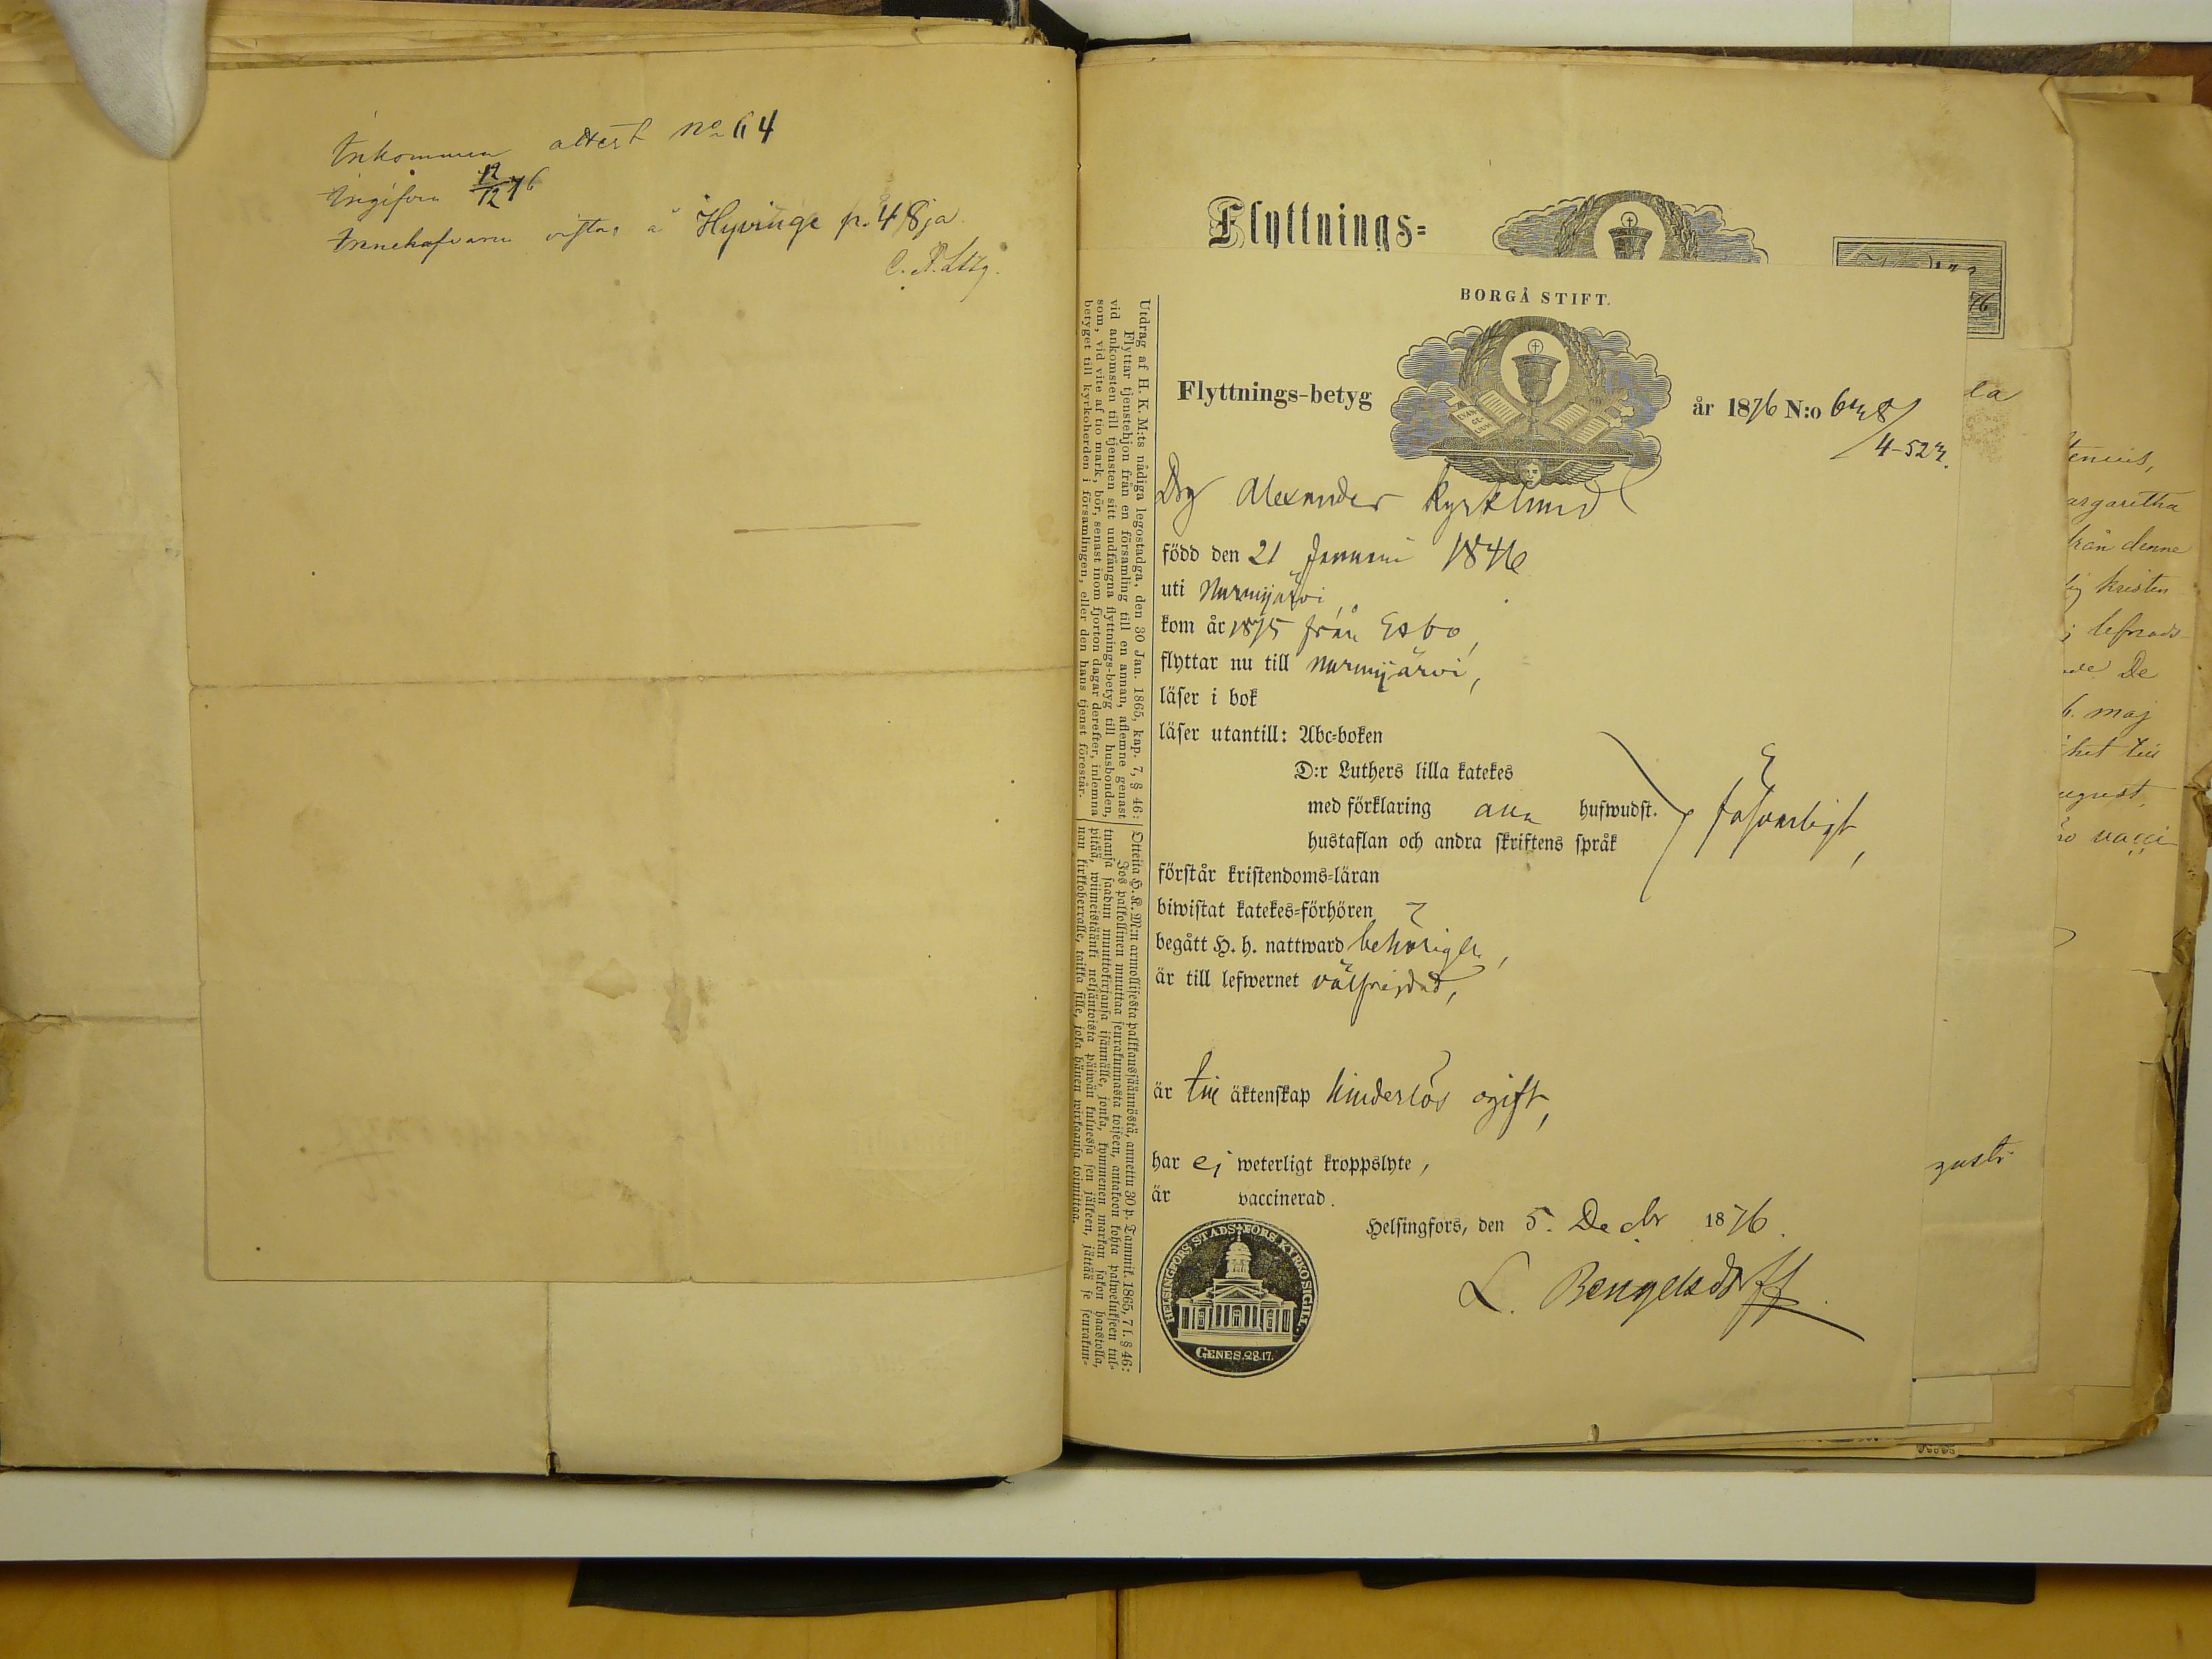 Inkommen attest No 64
Ingifven 12/12 76
Innehafvaren vistas å Hyvinge p. 48ja.
Flyttnings=
BORGÅ STIFT.
Flyttnings-betyg år 1876 N:o
4-523.
Drg Alexander Kyrklund
född den 21 Januari 1846
uti Nurmijärvi
kom år 1875 från Esbo,
flyttar nu till Nurmijärvi,
läser i bok
läser utantill: Abc=boken
D:r Luthers lilla katekes
med förklaring ann hufwudst.
hustaflan och andra skriftens språk
försvarligt,
förstår kristendoms=läran
biwistat katekes=förhören
begått H. h. nattward behörigen,
är till lefwernet välfrejdad,
är till äktenskap hinderlös ogift,
har ej weterligt kroppslyte,
är vaccinerad.
Helsingfors, den 5. Decbr 1876.
L. Bengelsdorff
HELSINGFORS STADS FÖRS. KYRKOSIGILL.
GENES. 28.17.
Utdrag af H. K. M:ts nådiga legostadga, den 30 Jan. 1865, kap. 7, § 46:
Flyttar tjenstehjon från en församling till en annan, aflemne genast
vid ankomsten till tjensten sitt undfångna flyttnings-betyg till husbonden,
som, vid vite af tio mark, bör, senast inom fjorton dagar derefter, inlemna
betyget till kyrkoherden i församlingen, eller den hans tjenst förestår.
Otteita H. K. M:n armollisesta palkkaussäännöstä, annettu 30 p. Tammik. 1865, 7 l. § 46:
Jos palkollinen muuttaa seurakunnasta toiseen, antakoon kohta palwelukseen tul-
tuansa saadun muuttokirjansa isännälle, jonka, kymmenen markan sakon haastolla,
pitää, wiimeistäänki neljäntoista päiwän kuluessa sen jälkeen, jättää se seurakun-
nan kirkkoherralle, taikka sille, joka hänen wirkaansa toimittaa.
argaritha
från denne
kristen
lefnads-
De
maj
vacci-